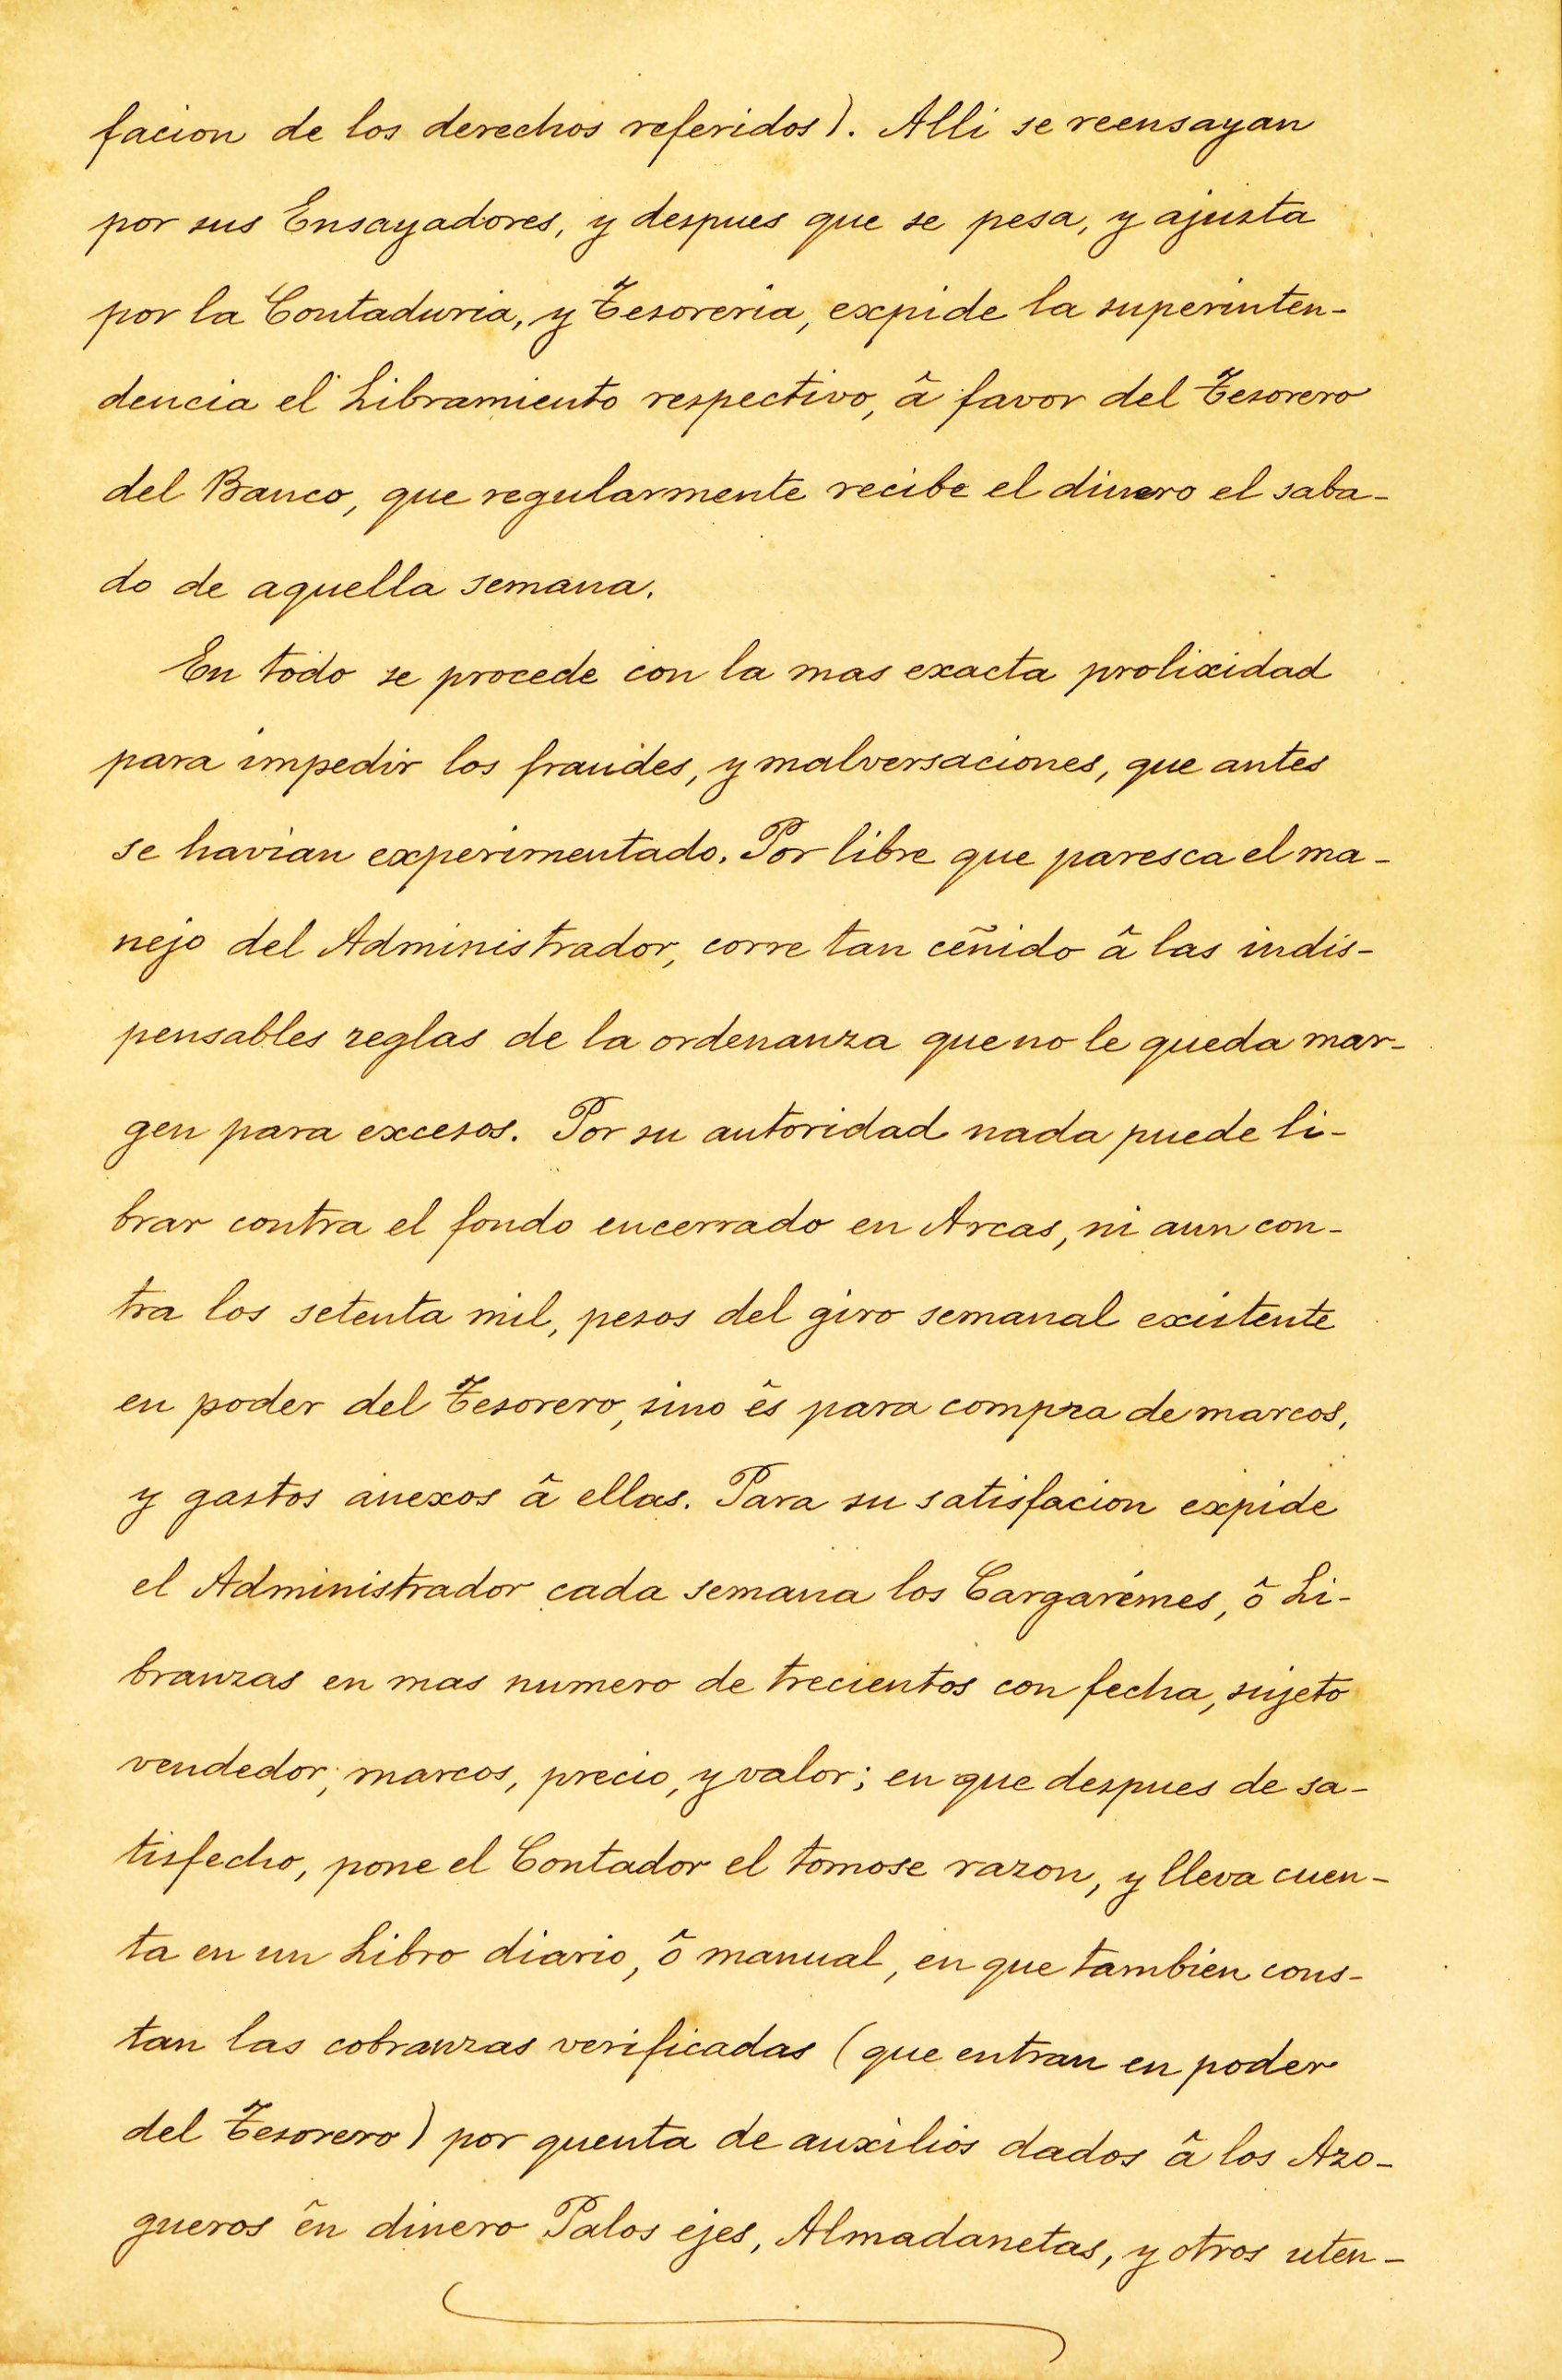 facion de los derechos referidos). Alli se reensayan
por sus Ensayadores, y despues que se pesa, y ajusta
por la Contaduria, y Tesoreria, expide la superinten-
dencia el Libramiento respectivo, â favor del Tesorero
del Banco, que regularmente recibe el dinero el saba-
do de aquella semana.
En todo se procede con la mas exacta prolixidad
para impedir los fraudes, y malversaciones, que antes
se havian experimentado. Por libre que paresca el ma-
nejo del Administrador, corre tan ceñido â las indis-
pensables reglas de la ordenanza que no le queda mar-
gen para excesos. Por su autoridad nada puede li-
brar contra el fondo encerrado en Arcas, ni aun con-
tra los setenta mil, pesos del giro semanal existente
en poder del Tesorero, sino ês para compra de marcos,
y gastos anexos â ellas. Para su satisfacion expide
el Administrador cada semana los Cargarémes, ô Li-
branzas en mas numero de trecientos con fecha, sujeto
vendedor, marcos, precio, y valor; en que despues de sa-
tisfecho, pone el Contador el tomose razon, y lleva cuen-
ta en un Libro diario, ô manual, en que tambien cons-
tan las cobranzas verificadas (que entran en poder
del Tesorero) por quenta de auxilios dados â los Azo-
gueros ên dinero Palos ejes, Almadanetas, y otros uten-